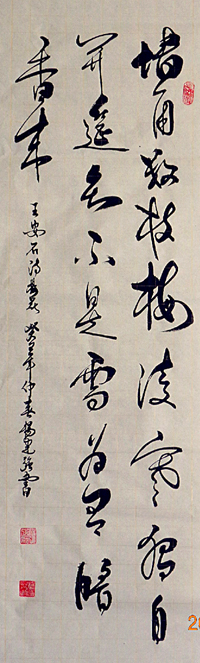 墙角数枝梅凌寒独自
开遥知不是雪为有暗
香来
王安石诗梅花 癸年仲春书